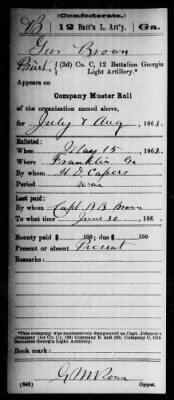 (Confederate.)
B | 12 Batt'n L. Art'y. | Ga.
Geo Brown
Privt, {(3d) Co. C, 12 Battalion Georgia
Light Artillery.*
Appears on
Company Muster Roll
of the organization named above,
for July & Aug, 1863.
Enlisted:
When May 15, 1862.
Where Franklin Ga
By whom H. D. Capers
Period war
Last paid:
By whom Capt. Brown
To what time June 30, 186 .
Bounty paid $ 100; due $ 100
Present or absent Present
Remarks:
*This company was successively designated as Capt. Johnson's
Company (1st Co. C); (2d) Company E and (3d) Company C, 12th
Battalion Georgia Light Artillery.
Book mark:
(642) Copyist.